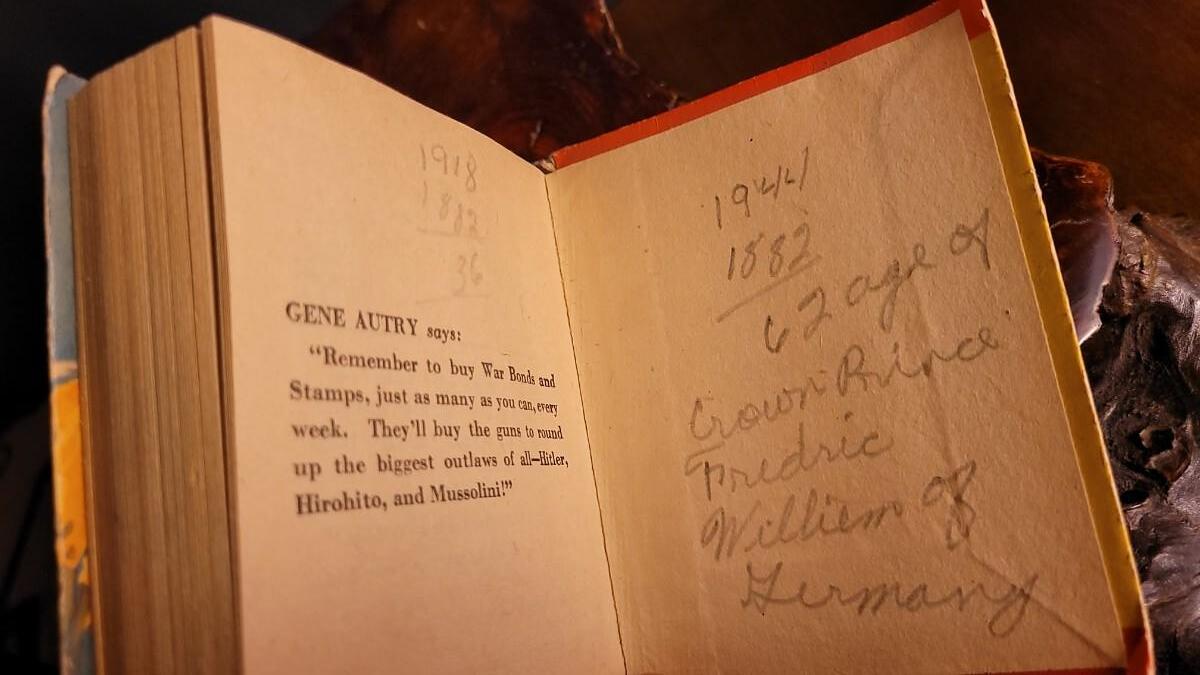 1918
1882
36
GENE AUTRY says:
"Remember to buy War Bonds and
Stamps, just as many as you can, every
week. They'll buy the guns to round
up the biggest outlaws of all—Hitler,
Hirohito, and Mussolini!"
1944
1882
62 age of
Crown Prince
Fredric
Williem of
Germany